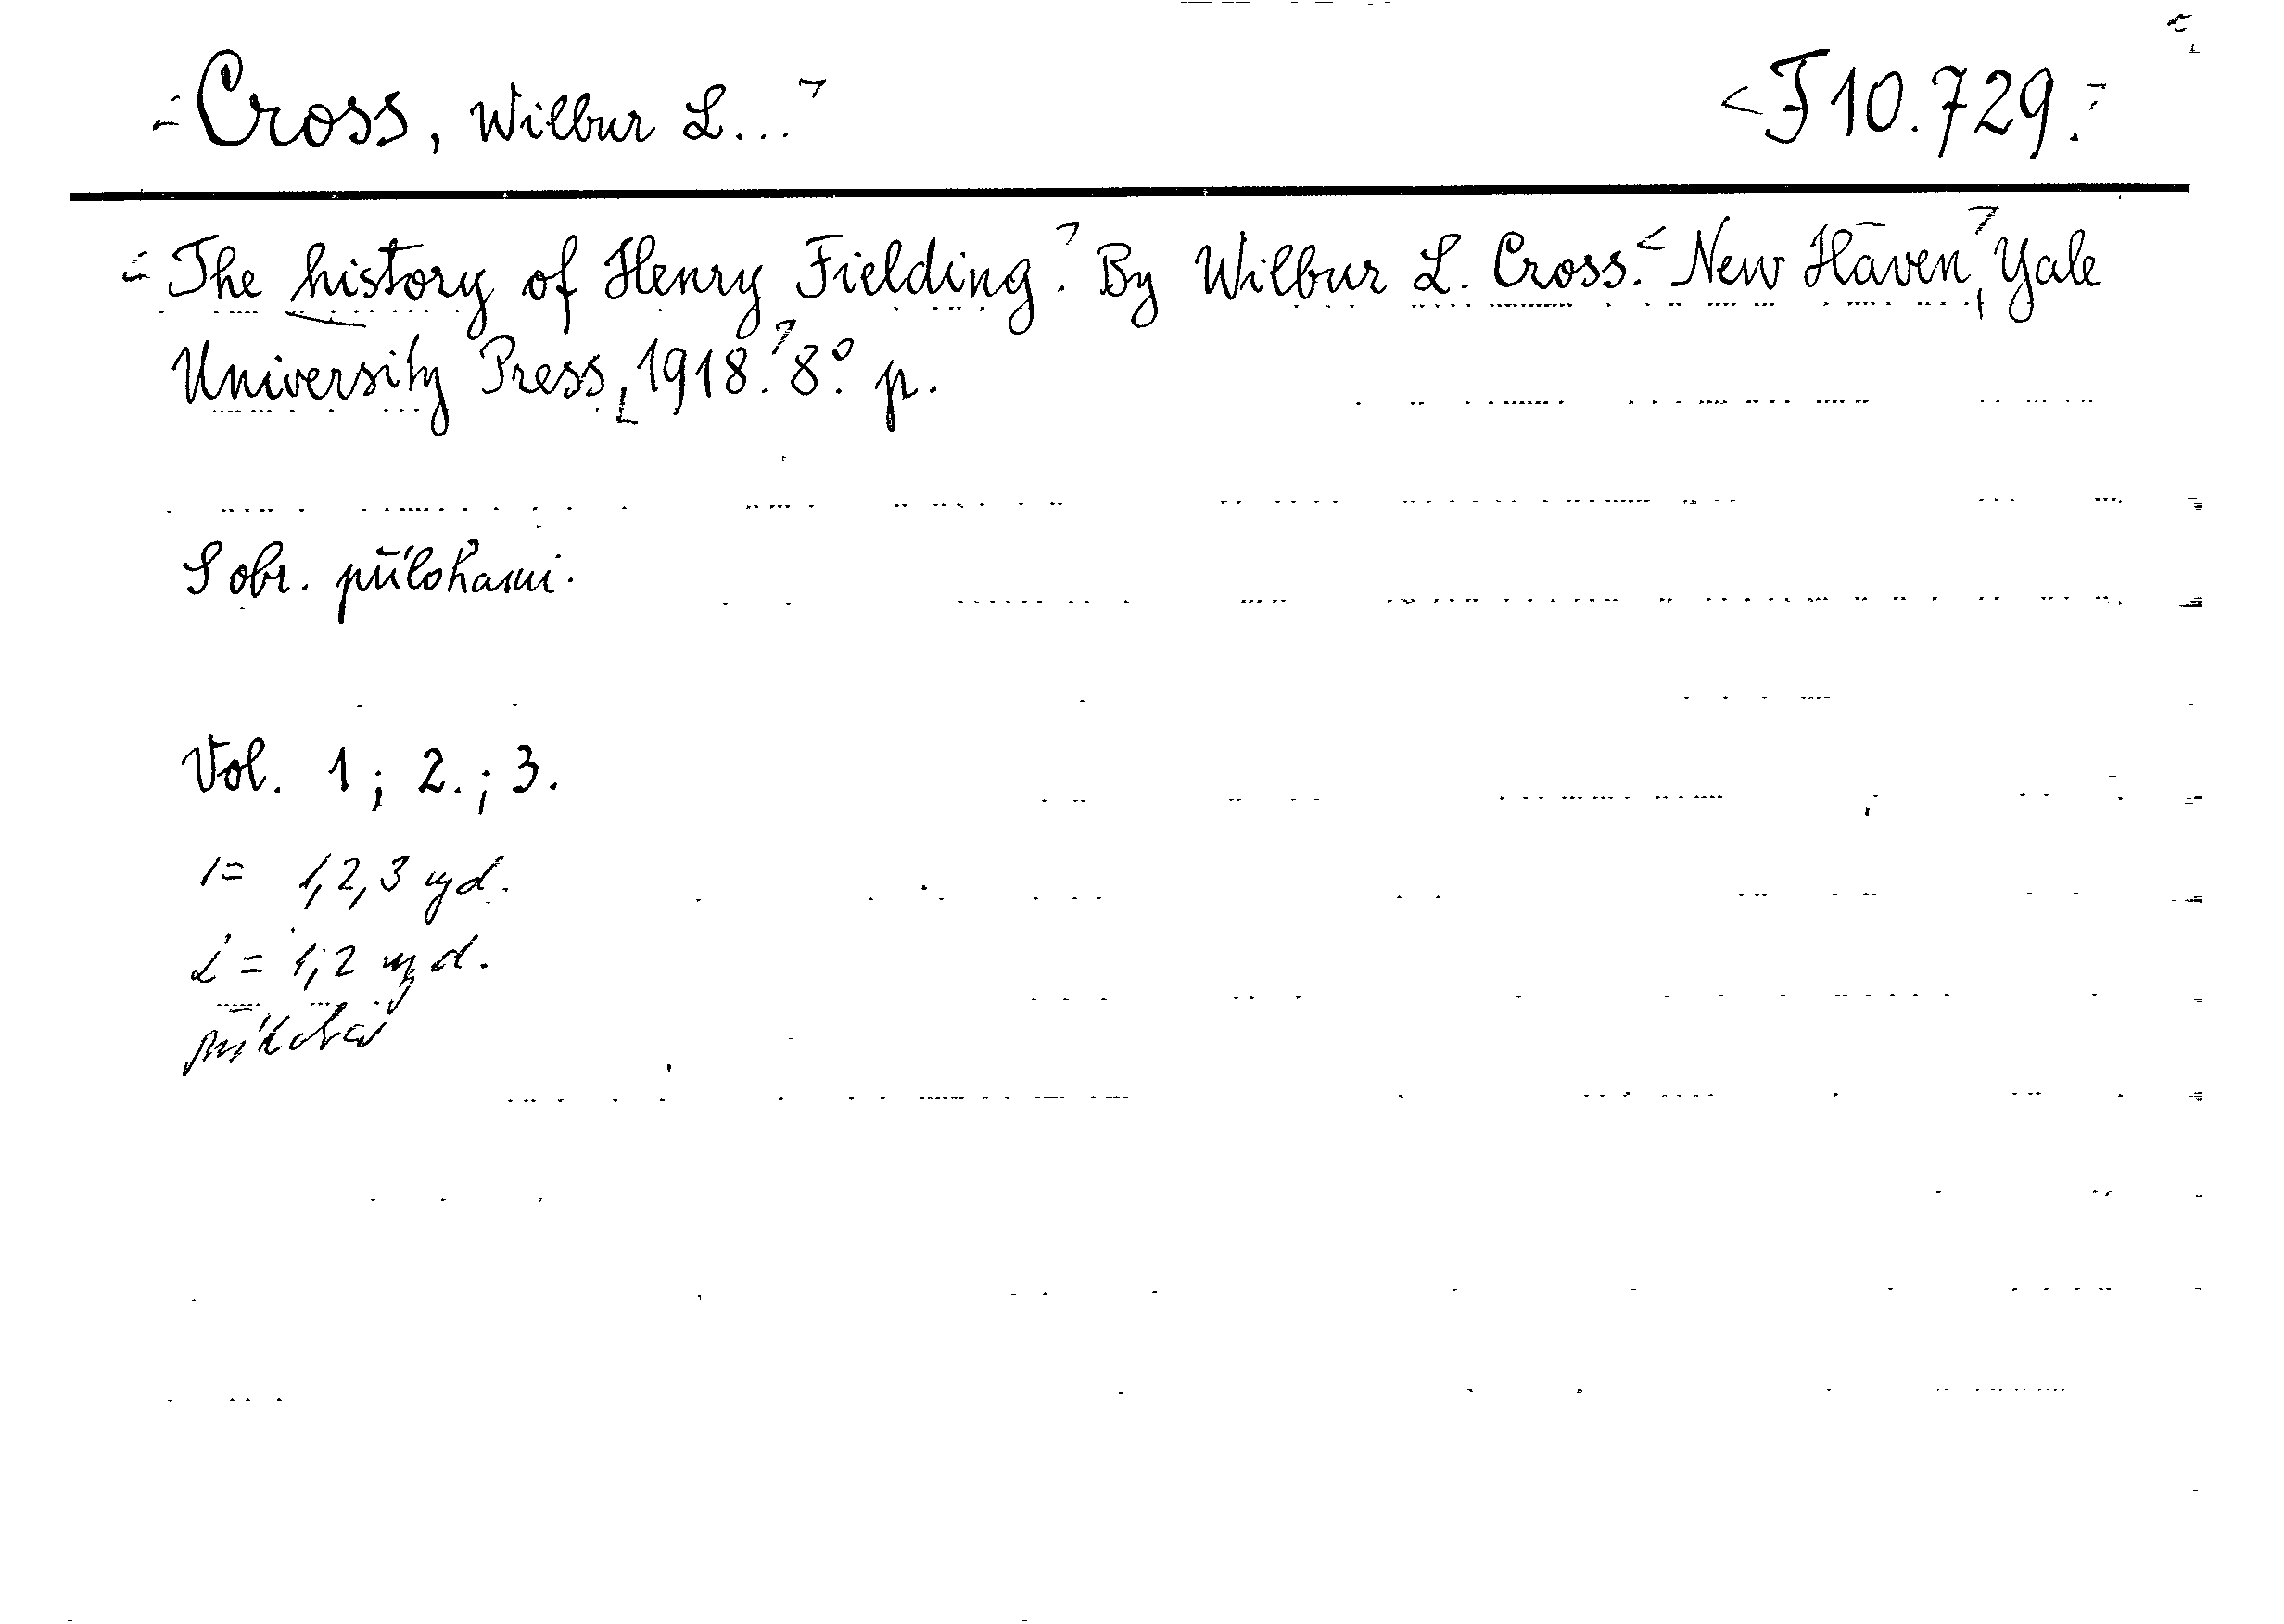 Cross, Wilbur L... F 10.729.
The history of Henry Fielding. By Wilbur L. Cross. New Haven, Yale
University Press, 1918. 8°. p.
S obr. přílohami.
Vol. 1; 2.; 3.
1 = 1, 2, 3 vyd.
2 = 1, 2 vyd.